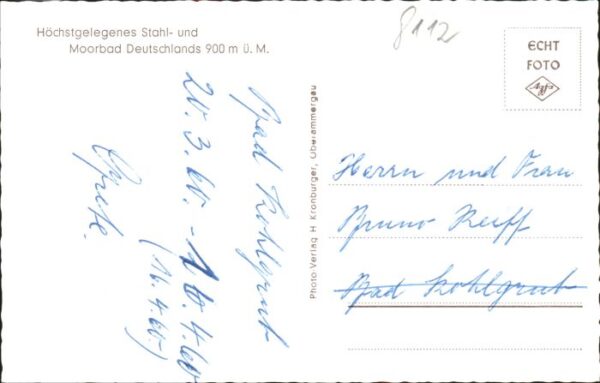 Höchstgelegenes Stahl- und
Moorbad Deutschlands 900 m ü. M.
8112
ECHT
FOTO
Agfa
Bad Kohlgrub
20.3.60. - 10.4.60
(16.4.60.)
Photo-Verlag H Kronburger, Oberammergau
Herrn und Frau
Bruno Reiff
Bad Kohlgrub